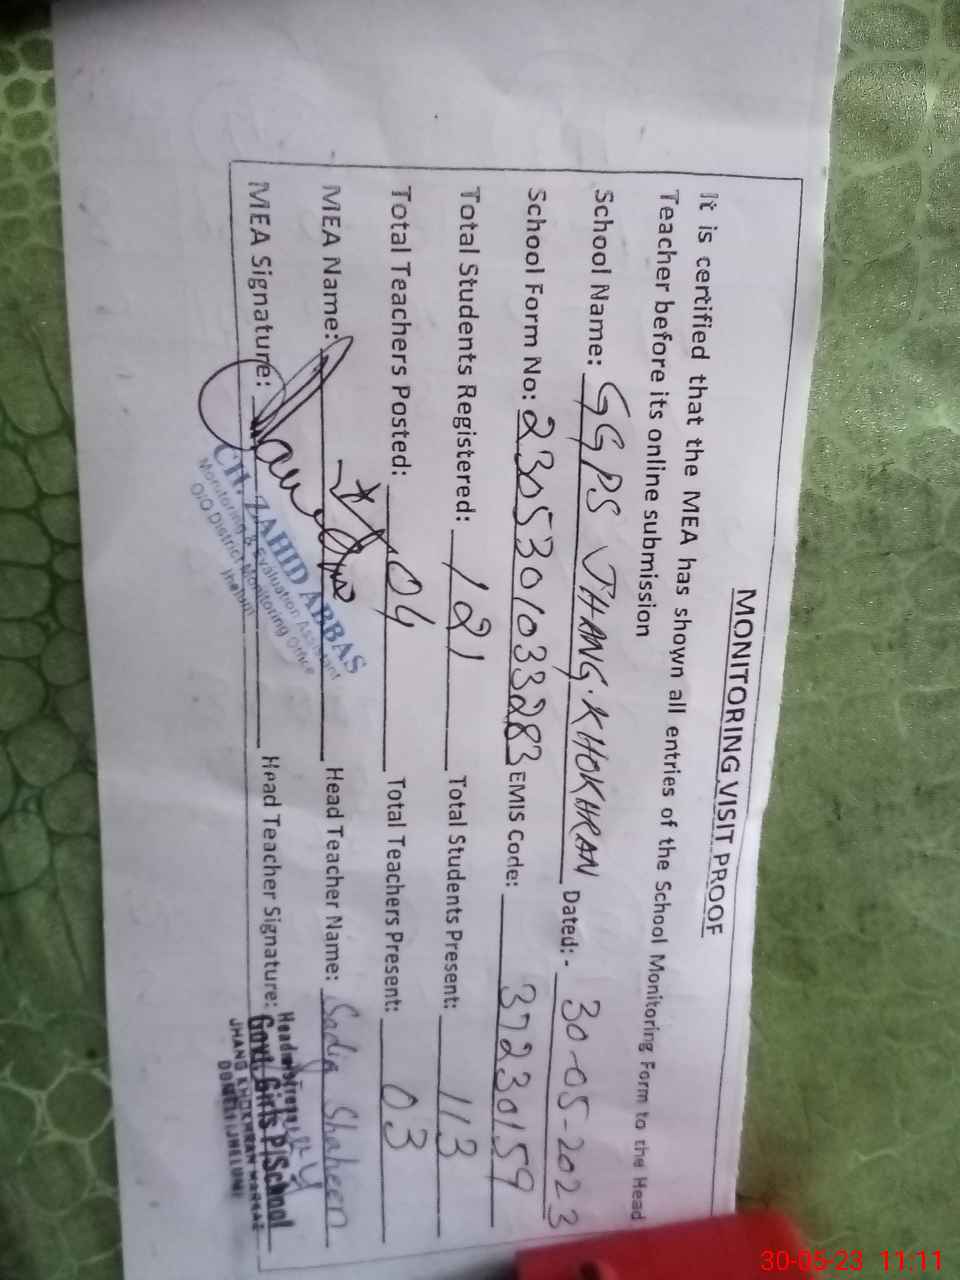 MONITORING VISIT PROOF
It is certified that the MEA has shown all entries of the School Monitoring Form to the Head
Teacher before its online submission
School Name: GGPS JHANG.KHOKHRAN Dated:- 30-05-2023
School Form No: 2305301033283 EMIS Code: 37230159
Total Students Registered: 121 Total Students Present: 113
Total Teachers Posted: 04 Total Teachers Present: 03
MEA Name: Head Teacher Name: Sadia Shaheen
MEA Signature: Head Teacher Signature:
CH. ZAHID ABBAS
Monitoring & Evaluation Assistant
O/O District Monitoring Office
Jhelum
Headmistress
Govt. Girls P/School
JHANG KHOKHRAN MARKAZ
DOMELI (JHELUM)
30-05-23 11:11